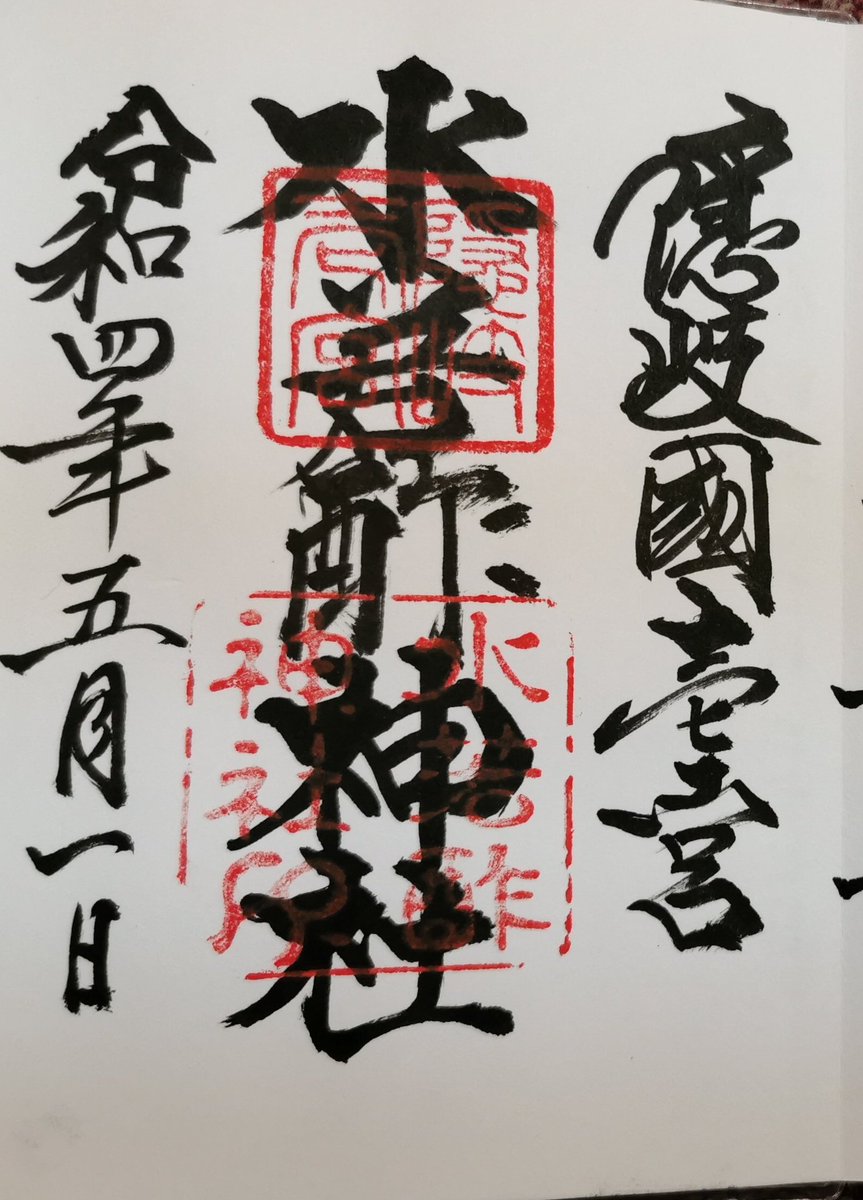 隠岐國壱宮
水若酢神社
水若酢
神社印
令和四年五月一日